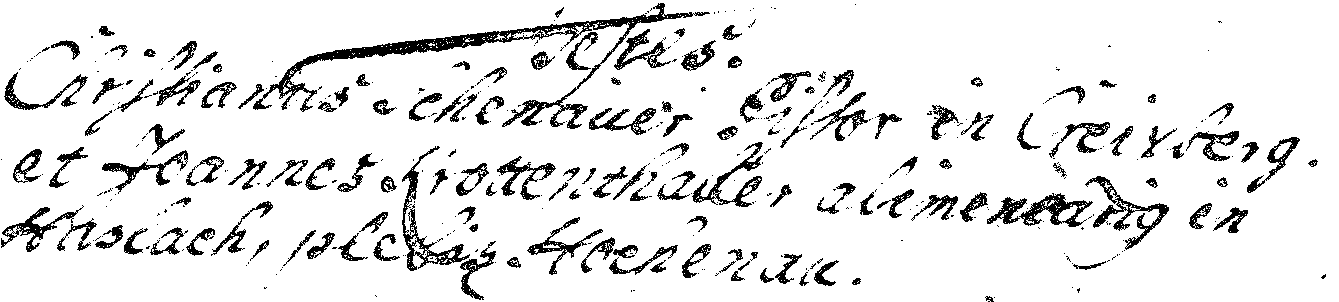 Testes.
Christianus Schenauer Pistor in Creixberg.
et Joannes Krottenthaller alimentariq in
Haslach, plebis Hochenau.